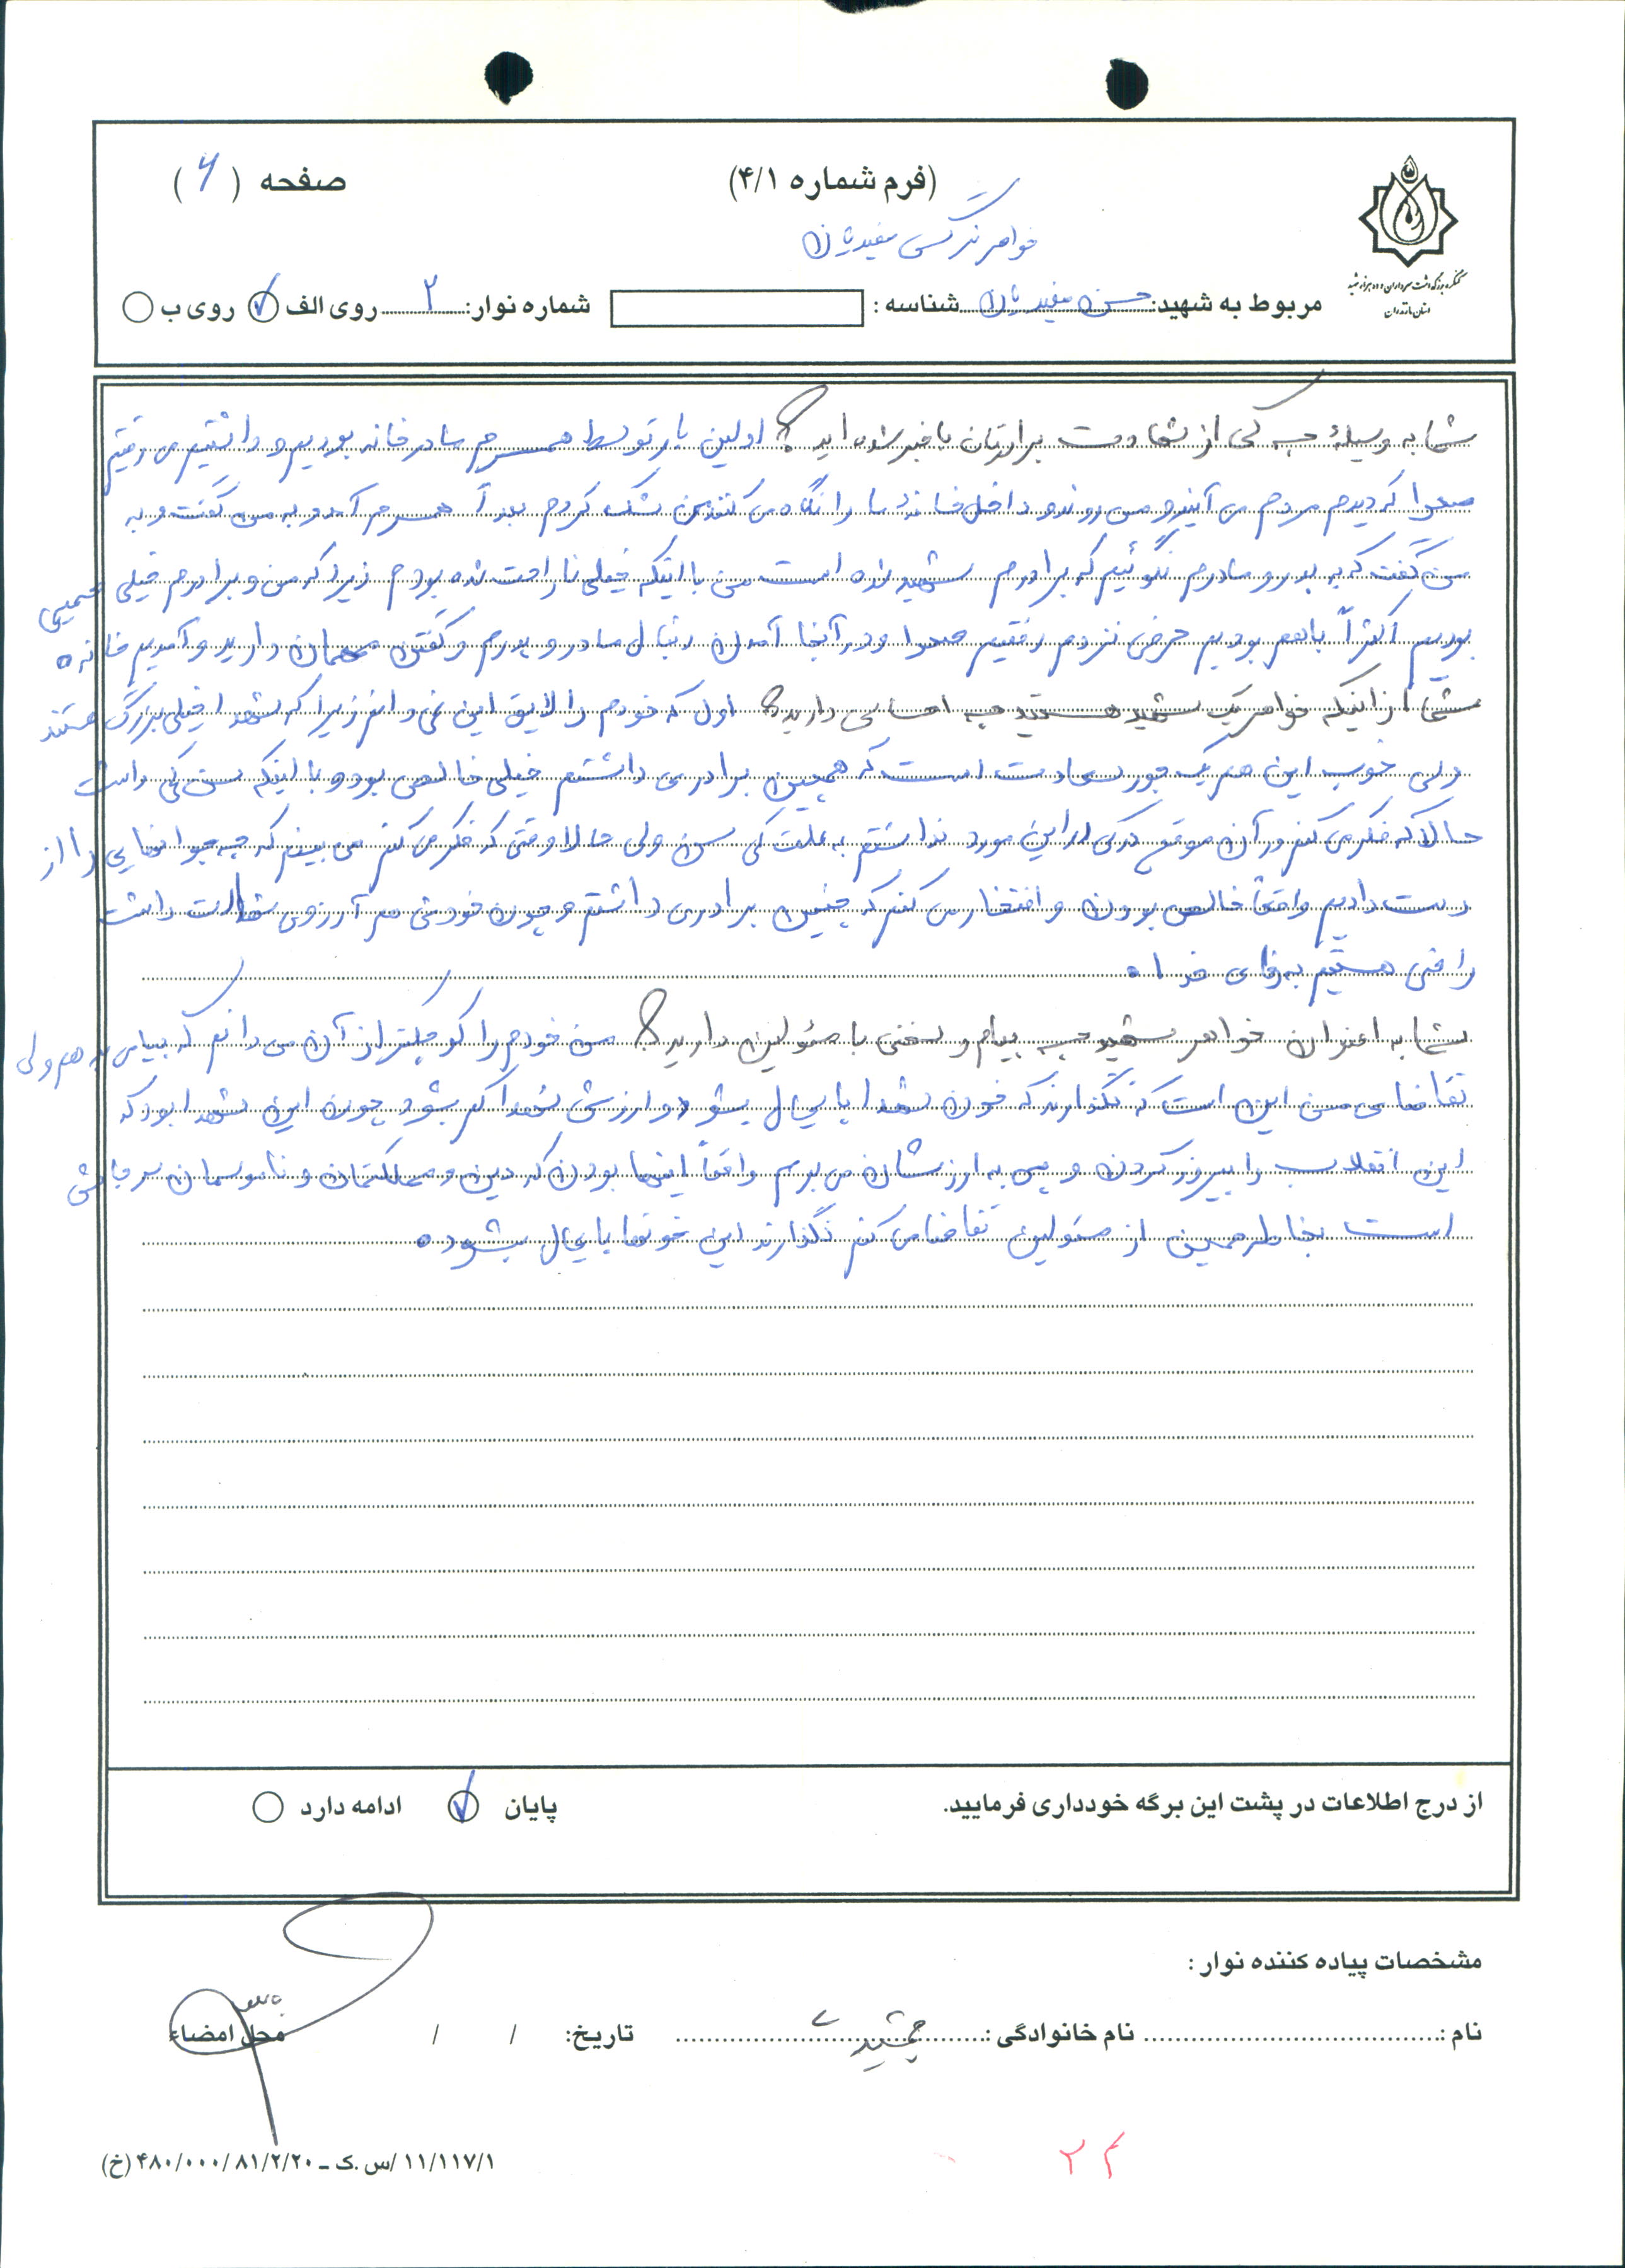 (فرم شماره ۴/۱)
صفحه ( ۶ )
خواهر نرگس سفیدیان
کنگره بزرگداشت سرداران و ده هزار شهید
استان مازندران
مربوط به شهید: حسن سفیدیان شناسه : شماره نوار: ۲ روی الف روی ب
شما به وسیله چه کسی از شهادت برادرتان باخبر شده اید؟ اولین بار توسط همسرم ما در خانه بودیم و داشتیم می رفتیم
صحرا که دیدم مردم می آیند و می روند و داخل خانه ما را نگاه می کنند من شک کردم بعداً همسرم آمد و به من گفت و به
من گفت که به پدر و مادرم نگوئیم که برادرم شهید شده است من با اینکه خیلی ناراحت شده بودم زیرا که من و برادرم خیلی صمیمی
بودیم اکثراً باهم بودیم حرفی نزدم رفتیم صحرا و در آنجا آمدن دنبال مادر و پدرم و گفتن مهمان دارید و آمدیم خانه .
شما از اینکه خواهر یک شهید هستید چه احساسی دارید؟ اول که خودم را لایق این نمی دانم زیرا که شهدا خیلی بزرگ هستند
ولی خوب این هم یک جور سعادت است که همچین برادری داشتم خیلی خالص بود و با اینکه سن کمی داشت
حالا که فکر می کنم در آن موقع درکی در این مورد نداشتم به علت کمی سن ولی حالا وقتی که فکر می کنم می بینم که چه جوانهایی را از
دست دادیم واقعاً خالص بودن و افتخار می کنم که چنین برادری داشتم و چون خودش هم آرزوی شهادت داشت
راضی هستیم به رضای خدا .
شما به اعنوان خواهر شهید چه پیام و سخنی با مسئولین دارید؟ من خودم را کوچکتر از آن می دانم که پیامی بدهم ولی
تقاضای من این است که نگذارند که خون شهدا پایمال بشود و ارزش شهدا کم بشود چون این شهدا بود که
این انقلاب را پیروز کردن و پی به ارزششان می بریم واقعاً اینها بودن که دین و مملکتمان و ناموسمان سرجایش
است بخاطر همین از مسئولین تقاضا می کنم نگذارند این خونها پایمال بشود .
از درج اطلاعات در پشت این برگه خودداری فرمایید.
پایان ادامه دارد
مشخصات پیاده کننده نوار :
نام : نام خانوادگی : جمشیدی تاریخ: / / محل امضاء
۱۱/۱۱۷/۱ /س.ک – ۴۸۰/۰۰۰/ ۸۱/۲/۲۰ (خ)
۲۴